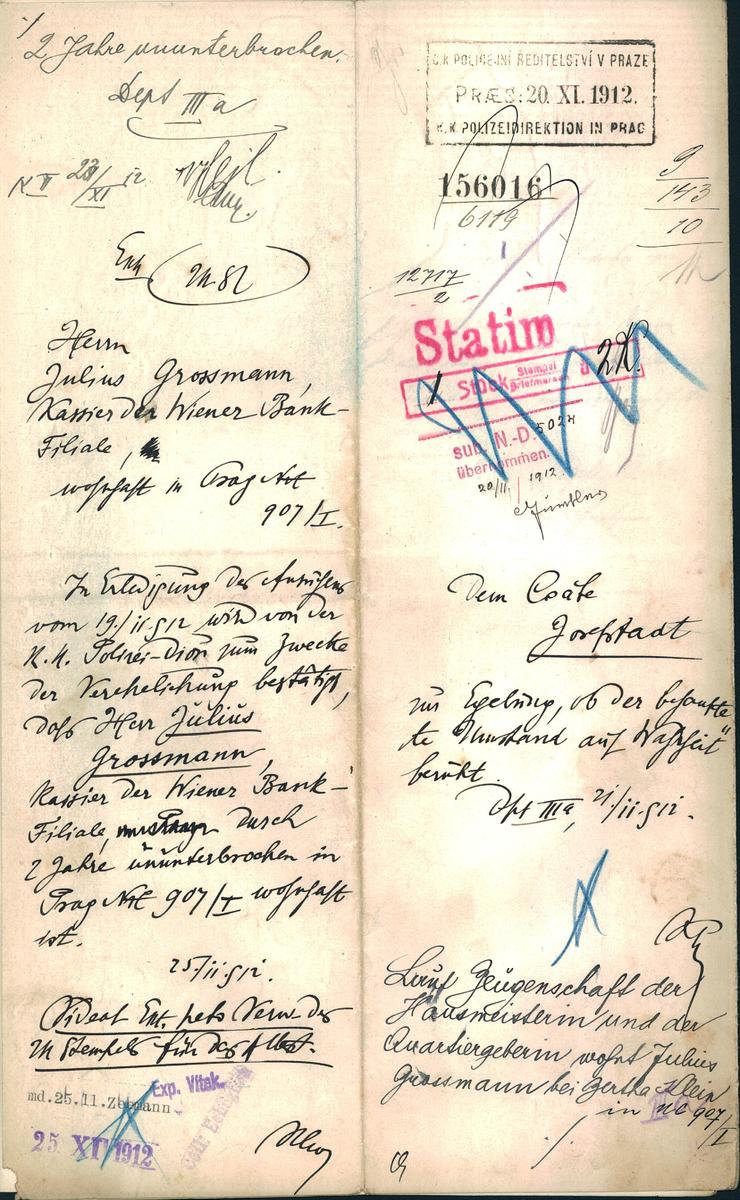 2 Jahre ununterbrochen.
Dept III a
23/XI 12
Herrn
Julius Grossmann,
Kassier der Wiener Bank-
Filiale,
wohnhaft in Prag
907/I.
In Erledigung des Ansuchens
vom 19./11.912 wird von der
K.K. Polizei-Dion zum Zwecke
der Verehelichung bestätigt,
daß Herr Julius
Grossmann,
Kassier der Wiener Bank-
Filiale, durch
2 Jahre ununterbrochen in
Prag 907/I wohnhaft
ist.
25./11.912.
Stempels für das
md.25.11.Zeemann
Exp. Vitek.
25 XI 1912
C.K. POLICEJNÍ ŘEDITELSTVÍ V PRAZE
PRÆS: 20. XI. 1912.
K.K. POLIZEIDIREKTION IN PRAG
156016
6119
9
143
10
12717
2
Statim
1 Stück Stempel Briefmarken à 2K.
sub. N.-D. 5024
übernommen.
20/11. 1912.
Dem Coate
Josefstadt
zur Egebung, ob der behaupte
te Umstand auf Wahrheit
beruht.
Dpt IIIa, 21./11.912.
Laut Zeugenschaft der
Hausmeisterin und der
Quartiergeberin wohnt Julius
Grossmann bei Bertha Klein
in NC 907/I